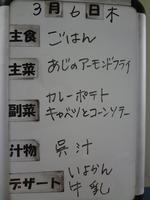 3月6日木
主食 ごはん
主菜 あじのアーモンドフライ
副菜 カレーポテト
キャベツとコーンソテー
汁物 呉汁
デザート いよかん
牛乳